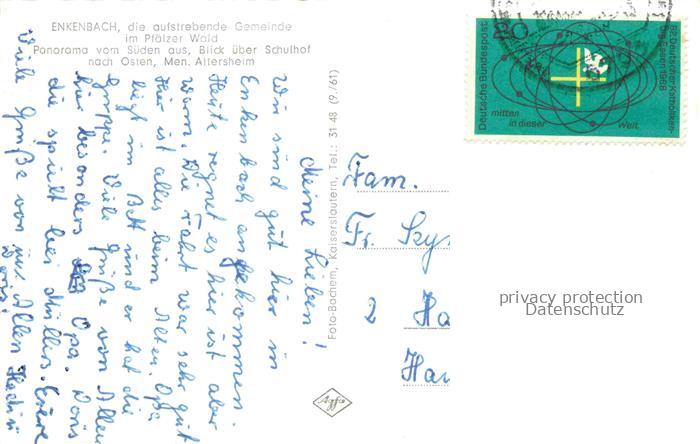 ENKENBACH, die aufstrebende Gemeinde
im Pfälzer Wald
Panorama vom Süden aus, Blick über Schulhof
nach Osten, Men. Altersheim
Meine Lieben!
Wir sind gut hier in
Enkenbach angekommen.
Heute regnet es hier ist aber
warm. Die Fahrt war sehr gut
Hier ist alles beim Alten. Opa
liegt im Bett und er hat die
Grippe. Viele Grüße von Allen
hier besonders Opa. Doris
die spielt bei Müllers. Eure
Viele Grüße von uns Allen
Doris!
Foto-Bochem, Kaiserslautern, Tel.: 31 48 (9./61)
Agfa
20
Deutsche Bundespost
82. Deutscher Katholiken-
tag Essen 1968
mitten
in dieser
Welt
Fam.
Fr.
2 Ha
Han
privacy protection
Datenschutz